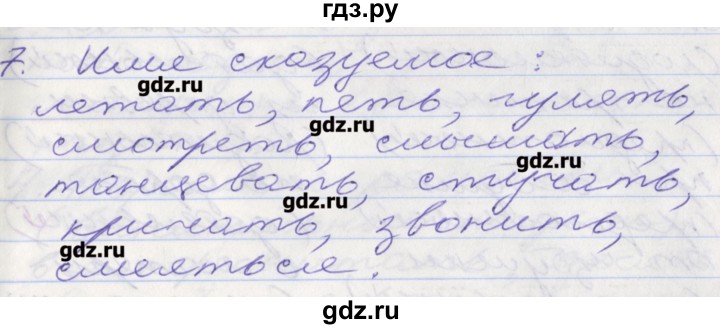 гдз.ру
7. Имя сказуемое:
gdz.ru
летать, петь, гулять,
gdz.ru
смотреть, слышать,
gdz.ru
танцевать, стучать,
gdz.ru
кричать, звонить,
gdz.ru
смеяться.
gdz.ru